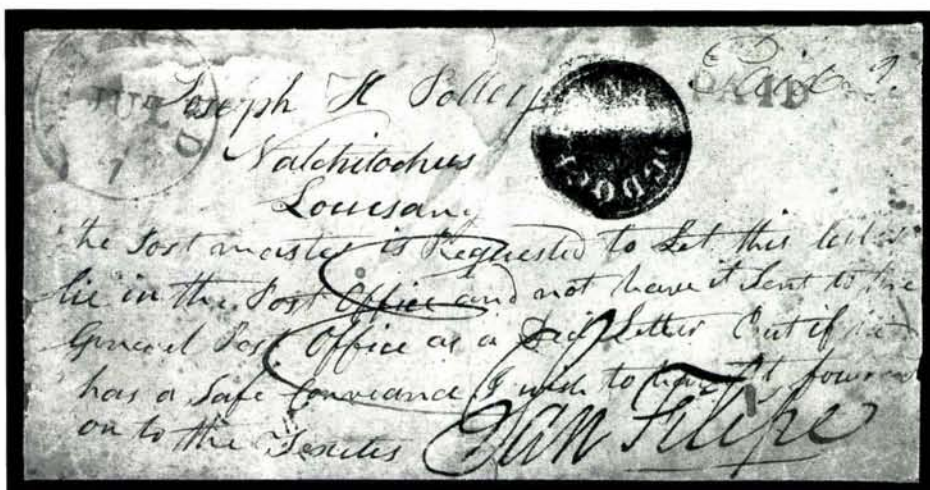 Paid
PAID
JUL
Joseph H Polley
Natchitochus
Louisany
the Post master is Requested to Let this letter
lie in the Post Office and not have it Sent to the
General Post Office as a Letter But if he
has a Safe Conveance I wish to have it forward
on to the
San Filipe